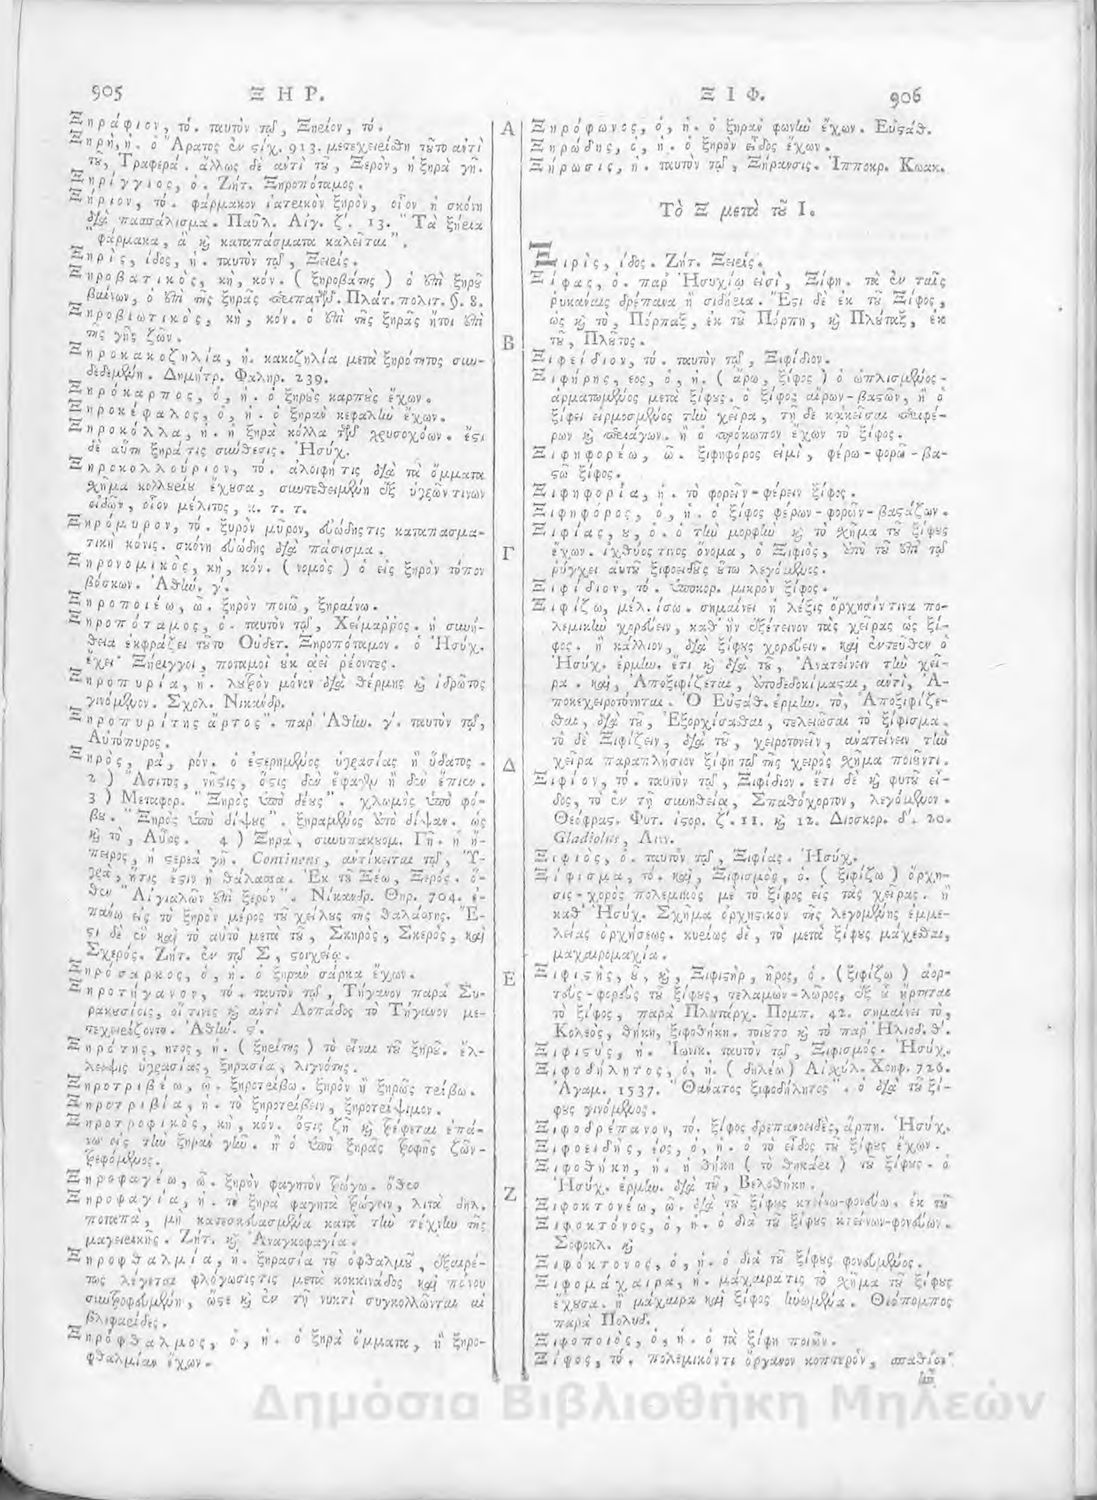 905 ΞΗΡ.
Ξηράφιον, τό. ταυτὸν τῷ, Ξηρίον, τό.
Ξηρὴ, ἡ. ὁ Ἄρατος ἐν στίχ. 913. μετεχειρίσθη τοῦτο ἀντὶ
τοῦ, Τραφερά. ἄλλως δὲ ἀντὶ τοῦ, Ξερὸν, ἡ ξηρὰ γῆ.
Ξηρίγγιος, ὁ. Ζήτ. Ξηροπόταμος.
Ξήριον, τό. φάρμακον ἰατρικὸν ξηρὸν, οἷον ἡ σκόνη
διὰ πασπάλισμα. Παῦλ. Αἰγ. ζ΄. 13. "Τὰ ξήρια
"φάρμακα, ἃ καὶ καταπάσματα καλεῖται".
Ξηρὶς, ίδος, ἡ. ταυτὸν τῷ, Ξειρίς.
Ξηροβατικὸς, κὴ, κόν. (ξηροβάτης) ὁ ἐπὶ ξηροῦ
βαίνων, ὁ ἐπὶ τῆς ξηρᾶς περιπατῶν. Πλάτ. πολιτ. §. 8.
Ξηροβιωτικὸς, κὴ, κόν. ὁ ἐπὶ τῆς ξηρᾶς ἤτοι ἐπὶ
τῆς γῆς ζῶν.
Ξηροκακοζηλία, ἡ. κακοζηλία μετὰ ξηρότητος συν-
δεδεμένη. Δημήτρ. Φαληρ. 239.
Ξηρόκαρπος, ὁ, ἡ. ὁ ξηροὺς καρποὺς ἔχων.
Ξηροκέφαλος, ὁ, ἡ. ὁ ξηρὰν κεφαλὴν ἔχων.
Ξηροκόλλα, ἡ. ἡ ξηρὰ κόλλα τῶν χρυσοχόων. ἔστι
δὲ αὕτη ξηρά τις σύνθεσις. Ἡσύχ.
Ξηροκολλούριον, τό. ἀλοιφή τις διὰ τὰ ὄμματα
σχῆμα κολλυρίου ἔχουσα, συντεθειμένη ἐξ ὑγρῶν τινων
εἰδῶν, οἷον μέλιτος, κ. τ. τ.
Ξηρόμυρον, τό. ξυρὸν μῦρον, εὐώδης τις καταπασμα-
τικὴ κόνις. σκόνη εὐώδης διὰ πάσισμα.
Ξηρονομικὸς, κὴ, κόν. (νομὸς) ὁ εἰς ξηρὸν τόπον
βόσκων. Ἀθήν. γ΄.
Ξηροποιέω, ῶ. ξηρὸν ποιῶ, ξηραίνω.
Ξηροπόταμος, ὁ. ταυτὸν τῷ, Χείμαρρος. ἡ συνή-
θεια ἐκφράζει τοῦτο Οὐδετ. Ξηροπόταμον. ὁ Ἡσύχ.
ἔχει Ξήριγγοι, ποταμοὶ οὐκ ἀεὶ ῥέοντες.
Ξηροπυρία, ἡ. λουτρὸν μόνον διὰ θέρμης καὶ ἱδρῶτος
γινόμενον. Σχολ. Νικάνδρ.
Ξηροπυρίτης ἄρτος. παρ' Ἀθήν. γ΄. ταυτὸν τῷ,
Αὐτόπυρος.
Ξηρὸς, ρὰ, ρόν. ὁ ἐστερημένος ὑγρασίας ἢ ὕδατος.
2) Ἄσιτος, νῆστις, ὅστις δὲν ἔφαγεν ἢ δὲν ἔπιεν.
3) Μεταφορ. "Ξηρὸς ὑπὸ δέους". χλωμὸς ὑπὸ φό-
βου. "Ξηρὸς ὑπὸ δίψους". ξηραμένος ὑπὸ δίψαν. ὡς
καὶ τὸ, Αὖος. 4) Ξηρὰ, συνυπακουομ. Γῆ. ἡ ἤ-
πειρος, ἡ στερεὰ γῆ. Continens, ἀντίκειται τῷ, Ὑ-
γρὰ, ἥτις ἐστιν ἡ θάλασσα. Ἐκ τοῦ Ξέω, Ξερός. ὅ-
θεν "Αἰγιαλῶν ἐπὶ ξερόν". Νίκανδρ. Θηρ. 704. ἐ-
πάνω εἰς τὸ ξηρὸν μέρος τοῦ χείλους τῆς θαλάσσης. Ἔ-
στι δὲ ἓν καὶ τὸ αὐτὸ μετὰ τοῦ, Σκηρὸς, Σκερὸς, καὶ
Σχερός. Ζήτ. ἐν τῷ Σ, στοιχείῳ.
Ξηρόσαρκος, ὁ, ἡ. ὁ ξηρὰν σάρκα ἔχων.
Ξηροτήγανον, τό. ταυτὸν τῷ, Τήγανον παρὰ Συ-
ρακουσίοις, οἵτινες καὶ ἀντὶ Λοπάδος τὸ Τήγανον με-
τεχειρίζοντο. Ἀθήν. ς΄.
Ξηρότης, ητος, ἡ. (ξηρίτης) τὸ εἶναι τοῦ ξηροῦ. ἔλ-
λειψις ὑγρασίας, ξηρασία, λιγνότης.
Ξηροτριβέω, ῶ. ξηροτρίβω. ξηρὸν ἢ ξηρῶς τρίβω.
Ξηροτριβία, ἡ. τὸ ξηροτρίβειν, ξηροτρίψιμον.
Ξηροτροφικὸς, κὴ, κόν. ὅστις ζῇ καὶ τρέφεται ἐπά-
νω εἰς τὴν ξηρὰν γῆν. ἢ ὁ ὑπὸ ξηρᾶς τροφῆς ζῶν-
τρεφόμενος.
Ξηροφαγέω, ῶ. ξηρὸν φαγητὸν τρώγω. ὅθεν
Ξηροφαγία, ἡ. τὸ ξηρὰ φαγητὰ τρώγειν, λιτὰ δηλ.
ποταπὰ, μὴ κατεσκευασμένα κατὰ τὴν τέχνην τῆς
μαγειρικῆς. Ζήτ. καὶ Ἀναγκοφαγία.
Ξηροφθαλμία, ἡ. ξηρασία τοῦ ὀφθαλμοῦ, ἐξαιρέ-
τως λέγεται φλόγωσίς τις μετὰ κοκκινάδος καὶ πόνου
συντροφευμένη, ὥστε καὶ ἐν τῇ νυκτὶ συγκολλῶνται αἱ
βλιφαρίδες.
Ξηρόφθαλμος, ὁ, ἡ. ὁ ξηρὰ ὄμματα, ἢ ξηρο-
φθαλμίαν ἔχων.
Α
Β
Γ
Δ
Ε
Ζ
ΞΙΦ. 906
Ξηρόφωνος, ὁ, ἡ. ὁ ξηρὰν φωνὴν ἔχων. Εὐστάθ.
Ξηρώδης, ὁ, ἡ. ὁ ξηρὸν εἶδος ἔχων.
Ξήρωσις, ἡ. ταυτὸν τῷ, Ξήρανσις. Ἱπποκρ. Κωακ.
Τὸ Ξ μετὰ τοῦ Ι.
Ξιρὶς, ίδος. Ζήτ. Ξειρίς.
Ξίφας, ὁ. παρ' Ἡσυχίῳ εἰσὶ, Ξίφη. τὰ ἐν ταῖς
ῥυκάναις δρέπανα ἢ σιδήρια. Ἔστι δὲ ἐκ τοῦ Ξίφος,
ὡς καὶ τὸ, Πόρπαξ, ἐκ τοῦ Πόρπη, καὶ Πλούταξ, ἐκ
τοῦ, Πλοῦτος.
Ξιφείδιον, τό. ταυτὸν τῷ, Ξιφίδιον.
Ξιφήρης, εος, ὁ, ἡ. (ἄρω, ξίφος) ὁ ὡπλισμένος-
ἁρματωμένος μετὰ ξίφους. ὁ ξίφος αἴρων-βαστῶν, ἢ ὁ
ξίφει εἱρμοσμένος τὴν χεῖρα, τῇ δὲ κἀκεῖσε περιφέ-
ρων καὶ περιάγων. ἢ ὁ πρόκωπον ἔχων τὸ ξίφος.
Ξιφηφορέω, ῶ. ξιφηφόρος εἰμὶ, φέρω-φορῶ-βα-
στῶ ξίφος.
Ξιφηφορία, ἡ. τὸ φορεῖν-φέρειν ξίφος.
Ξιφηφόρος, ὁ, ἡ. ὁ ξίφος φέρων-φορῶν-βαστάζων.
Ξιφίας, ου, ὁ. ὁ τὴν μορφὴν καὶ τὸ σχῆμα τοῦ ξίφους
ἔχων. ἰχθύος τινος ὄνομα, ὁ Ξιφιὸς, ὑπὸ τοῦ ἐπὶ τῷ
ῥύγχει αὐτοῦ ξιφοειδοῦς οὕτω λεγόμενος.
Ξιφίδιον, τό. ὑποκορ. μικρὸν ξίφος.
Ξιφίζω, μέλ. ίσω. σημαίνει ἡ λέξις ὄρχησίν τινα πο-
λεμικὴν χορεύειν, καθ' ἣν ἐξέτεινον τὰς χεῖρας ὡς ξί-
φος. ἢ κάλλιον, διὰ ξίφους χορεύειν. καὶ ἐντεῦθεν ὁ
Ἡσύχ. ἑρμην. ἔτι καὶ διὰ τοῦ, Ἀνατείνειν τὴν χεῖ-
ρα. καὶ, Ἀποξιφίζεται, ἀποδεδοκίμασαι, ἀντὶ, Ἀ-
ποκεχειροτόνηται. Ὁ Εὐστάθ. ἑρμην. τὸ, Ἀποξιφίζε-
σθαι, διὰ τοῦ, Ἐξορχίσασθαι, τελειῶσαι τὸ ξίφισμα.
τὸ δὲ Ξιφίζειν, διὰ τοῦ, χειροτονεῖν, ἀνατείνειν τὴν
χεῖρα παραπλήσιον ξίφη τῷ τῆς χειρὸς σχῆμα ποιοῦντι.
Ξιφίον, τό. ταυτὸν τῷ, Ξιφίδιον. ἔτι δὲ καὶ φυτοῦ εἶ-
δος, τὸ ἐν τῇ συνηθείᾳ, Σπαθόχορτον, λεγόμενον.
Θεόφραστ. Φυτ. ἱστορ. ζ΄. 11. καὶ 12. Διοσκορ. δ΄. 20.
Gladiolus, Λιν.
Ξιφιὸς, ὁ. ταυτὸν τῷ, Ξιφίας. Ἡσύχ.
Ξίφισμα, τό. καὶ, Ξιφισμὸς, ὁ. (ξιφίζω) ὄρχη-
σις-χορὸς πολεμικὸς μὲ τὸ ξίφος εἰς τὰς χεῖρας. ἢ
καθ' Ἡσύχ. Σχῆμα ὀρχηστικὸν τῆς λεγομένης ἐμμε-
λείας ὀρχήσεως. κυρίως δὲ, τὸ μετὰ ξίφους μάχεσθαι,
μαχαιρομαχία.
Ξιφιστὴς, οῦ, καὶ, Ξιφιστὴρ, ῆρος, ὁ. (ξιφίζω) ἀορ-
τοὺς-φορεὺς τοῦ ξίφους, τελαμων-λῶρος, ἐξ οὗ ἤρτηται
τὸ ξίφος, παρὰ Πλουτάρχ. Πομπ. 42. σημαίνει τὸ,
Κολεὸς, θήκη, ξιφοθήκη. τοιοῦτο καὶ τὸ παρ' Ἡλιοδ. θ΄.
Ξιφιστὺς, ἡ. Ἰωνικ. ταυτὸν τῷ, Ξιφισμός. Ἡσύχ.
Ξιφοδήλητος, ὁ, ἡ. (δηλέω) Αἰσχύλ. Χοηφ. 726.
Ἀγαμ. 1537. "Θάνατος ξιφοδήλητος". ὁ διὰ τοῦ ξί-
φους γινόμενος.
Ξιφοδρέπανον, τό. ξίφος δρεπανοειδὲς, ἅρπη. Ἡσύχ.
Ξιφοειδὴς, έος, ὁ, ἡ. ὁ τὸ εἶδος τοῦ ξίφους ἔχων.
Ξιφοθήκη, ἡ. ἡ θήκη (τὸ θηκάρι) τοῦ ξίφους. ὁ
Ἡσύχ. ἑρμην. διὰ τοῦ, Βελοθήκη.
Ξιφοκτονέω, ῶ. διὰ τοῦ ξίφους κτείνω-φονεύω. ἐκ τοῦ
Ξιφοκτόνος, ὁ, ἡ. ὁ διὰ τοῦ ξίφους κτείνων-φονεύων.
Σοφοκλ. καὶ
Ξιφόκτονος, ὁ, ἡ. ὁ διὰ τοῦ ξίφους φονευόμενος.
Ξιφομάχαιρα, ἡ. μάχαιρά τις τὸ σχῆμα τοῦ ξίφους
ἔχουσα. ἢ μάχαιρα καὶ ξίφος ἡνωμένα. Θεόπομπος
παρὰ Πολυδ.
Ξιφοποιὸς, ὁ, ἡ. ὁ τὰ ξίφη ποιῶν.
Ξίφος, τό. πολεμικόν τι ὄργανον κοπτερὸν, σπαθίον
Δημόσια Βιβλιοθήκη Μηλεών